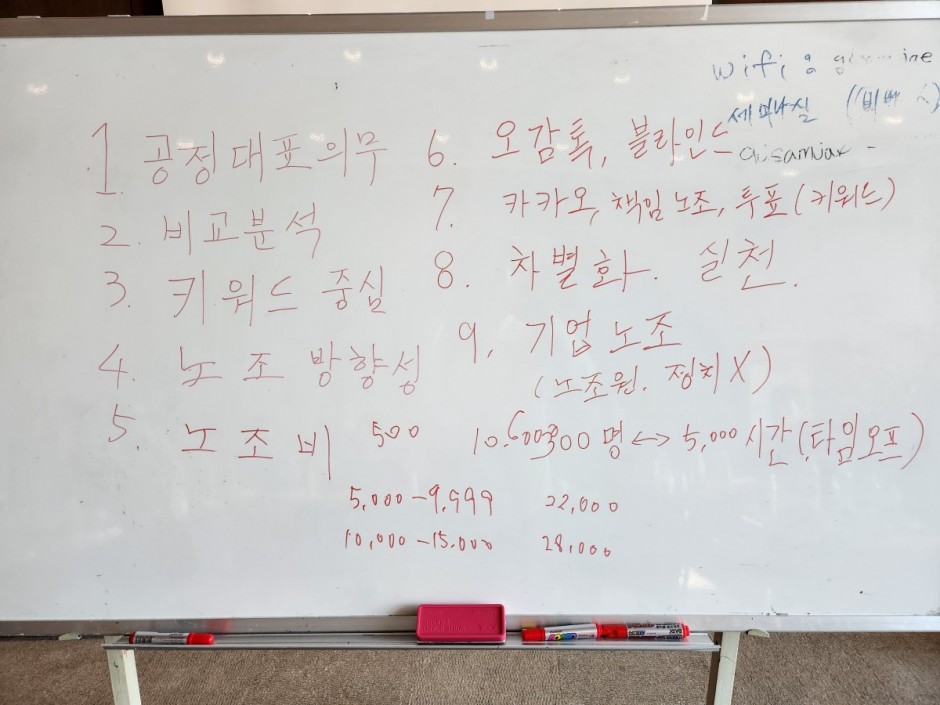 wifi :
세미나실
1. 공정대표의무
2. 비교분석
3. 키워드 중심
4. 노조 방향성
5. 노조비 500
6. 오감톡, 블라인드
7. 카카오, 책임노조, 투표(키워드)
8. 차별화. 실천.
9. 기업노조
(노조원. 정치X)
300명 ↔ 5,000시간(타임오프)
5,000-9,999 22,000
10,000-15.000 28,000